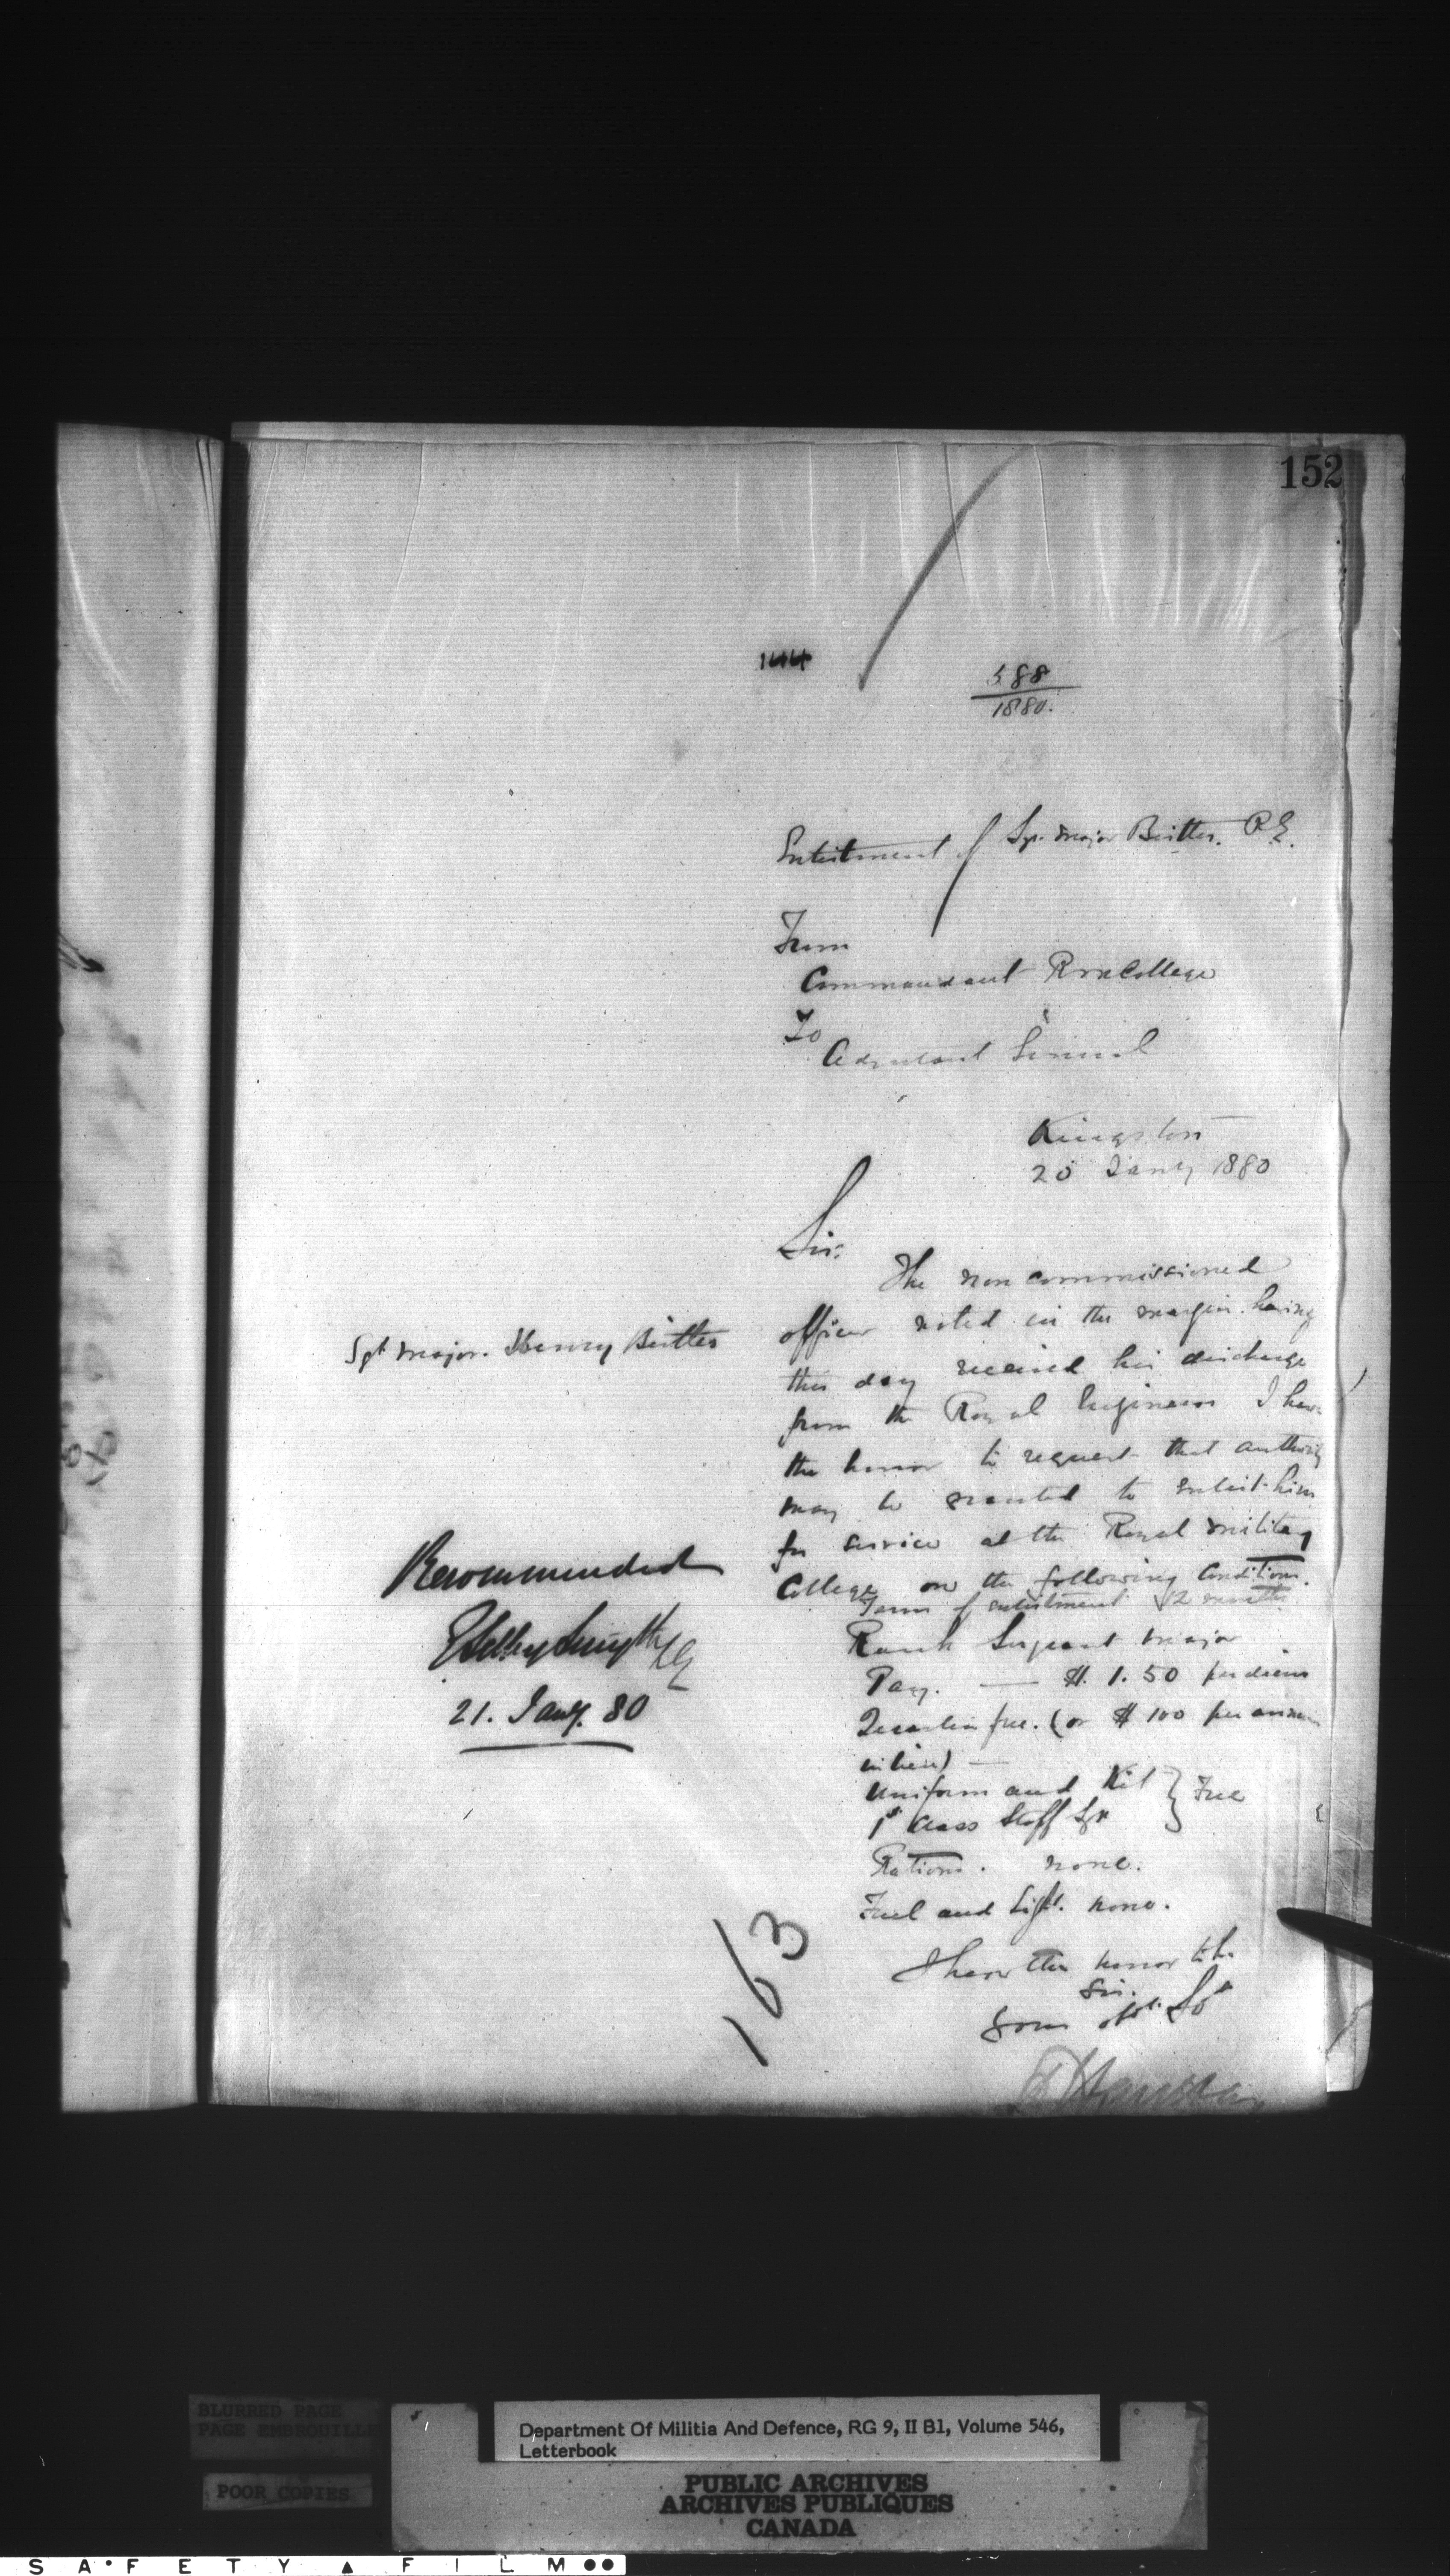 152
144
588
1880.
Enlistment of Sgt. Major Birtles. R.E.
From
Commandant R M College
To
Adjutant General
Kingston
20 Jany 1880
Sir:
The non commissioned
officer noted in the margin having
Sgt Major. Henry Birtles
this day received his discharge
from the Royal Engineers I have
the honor to request that authority
may be granted to enlist him
for service at the Royal Military
College on the following Conditions.
Term of enlistment 12 months
Rank Sergeant Major
Pay. — $1.50 per diem
Quarters free. (or $100 per annum
in lieu) —
Uniform and Kit } Free
1st Class Staff Sgt
Rations. none.
Fuel and Light. none.
I have the honor to be
Sir.
Your obt. St
Recommended
E Selby Smyth LG
21. Jany. 80
163
BLURRED PAGE
PAGE EMBROUILLE
POOR COPIES
Department Of Militia And Defence, RG 9, II B1, Volume 546,
Letterbook
PUBLIC ARCHIVES
ARCHIVES PUBLIQUES
CANADA
SAFETY FILM